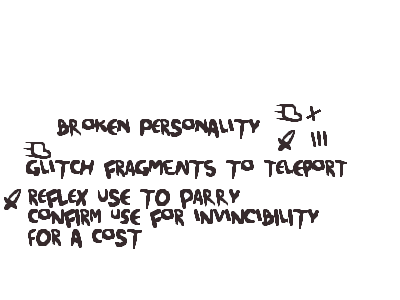 BROKEN PERSONALITY
GLITCH FRAGMENTS TO TELEPORT
REFLEX USE TO PARRY
CONFIRM USE FOR INVINCIBILITY
FOR A COST